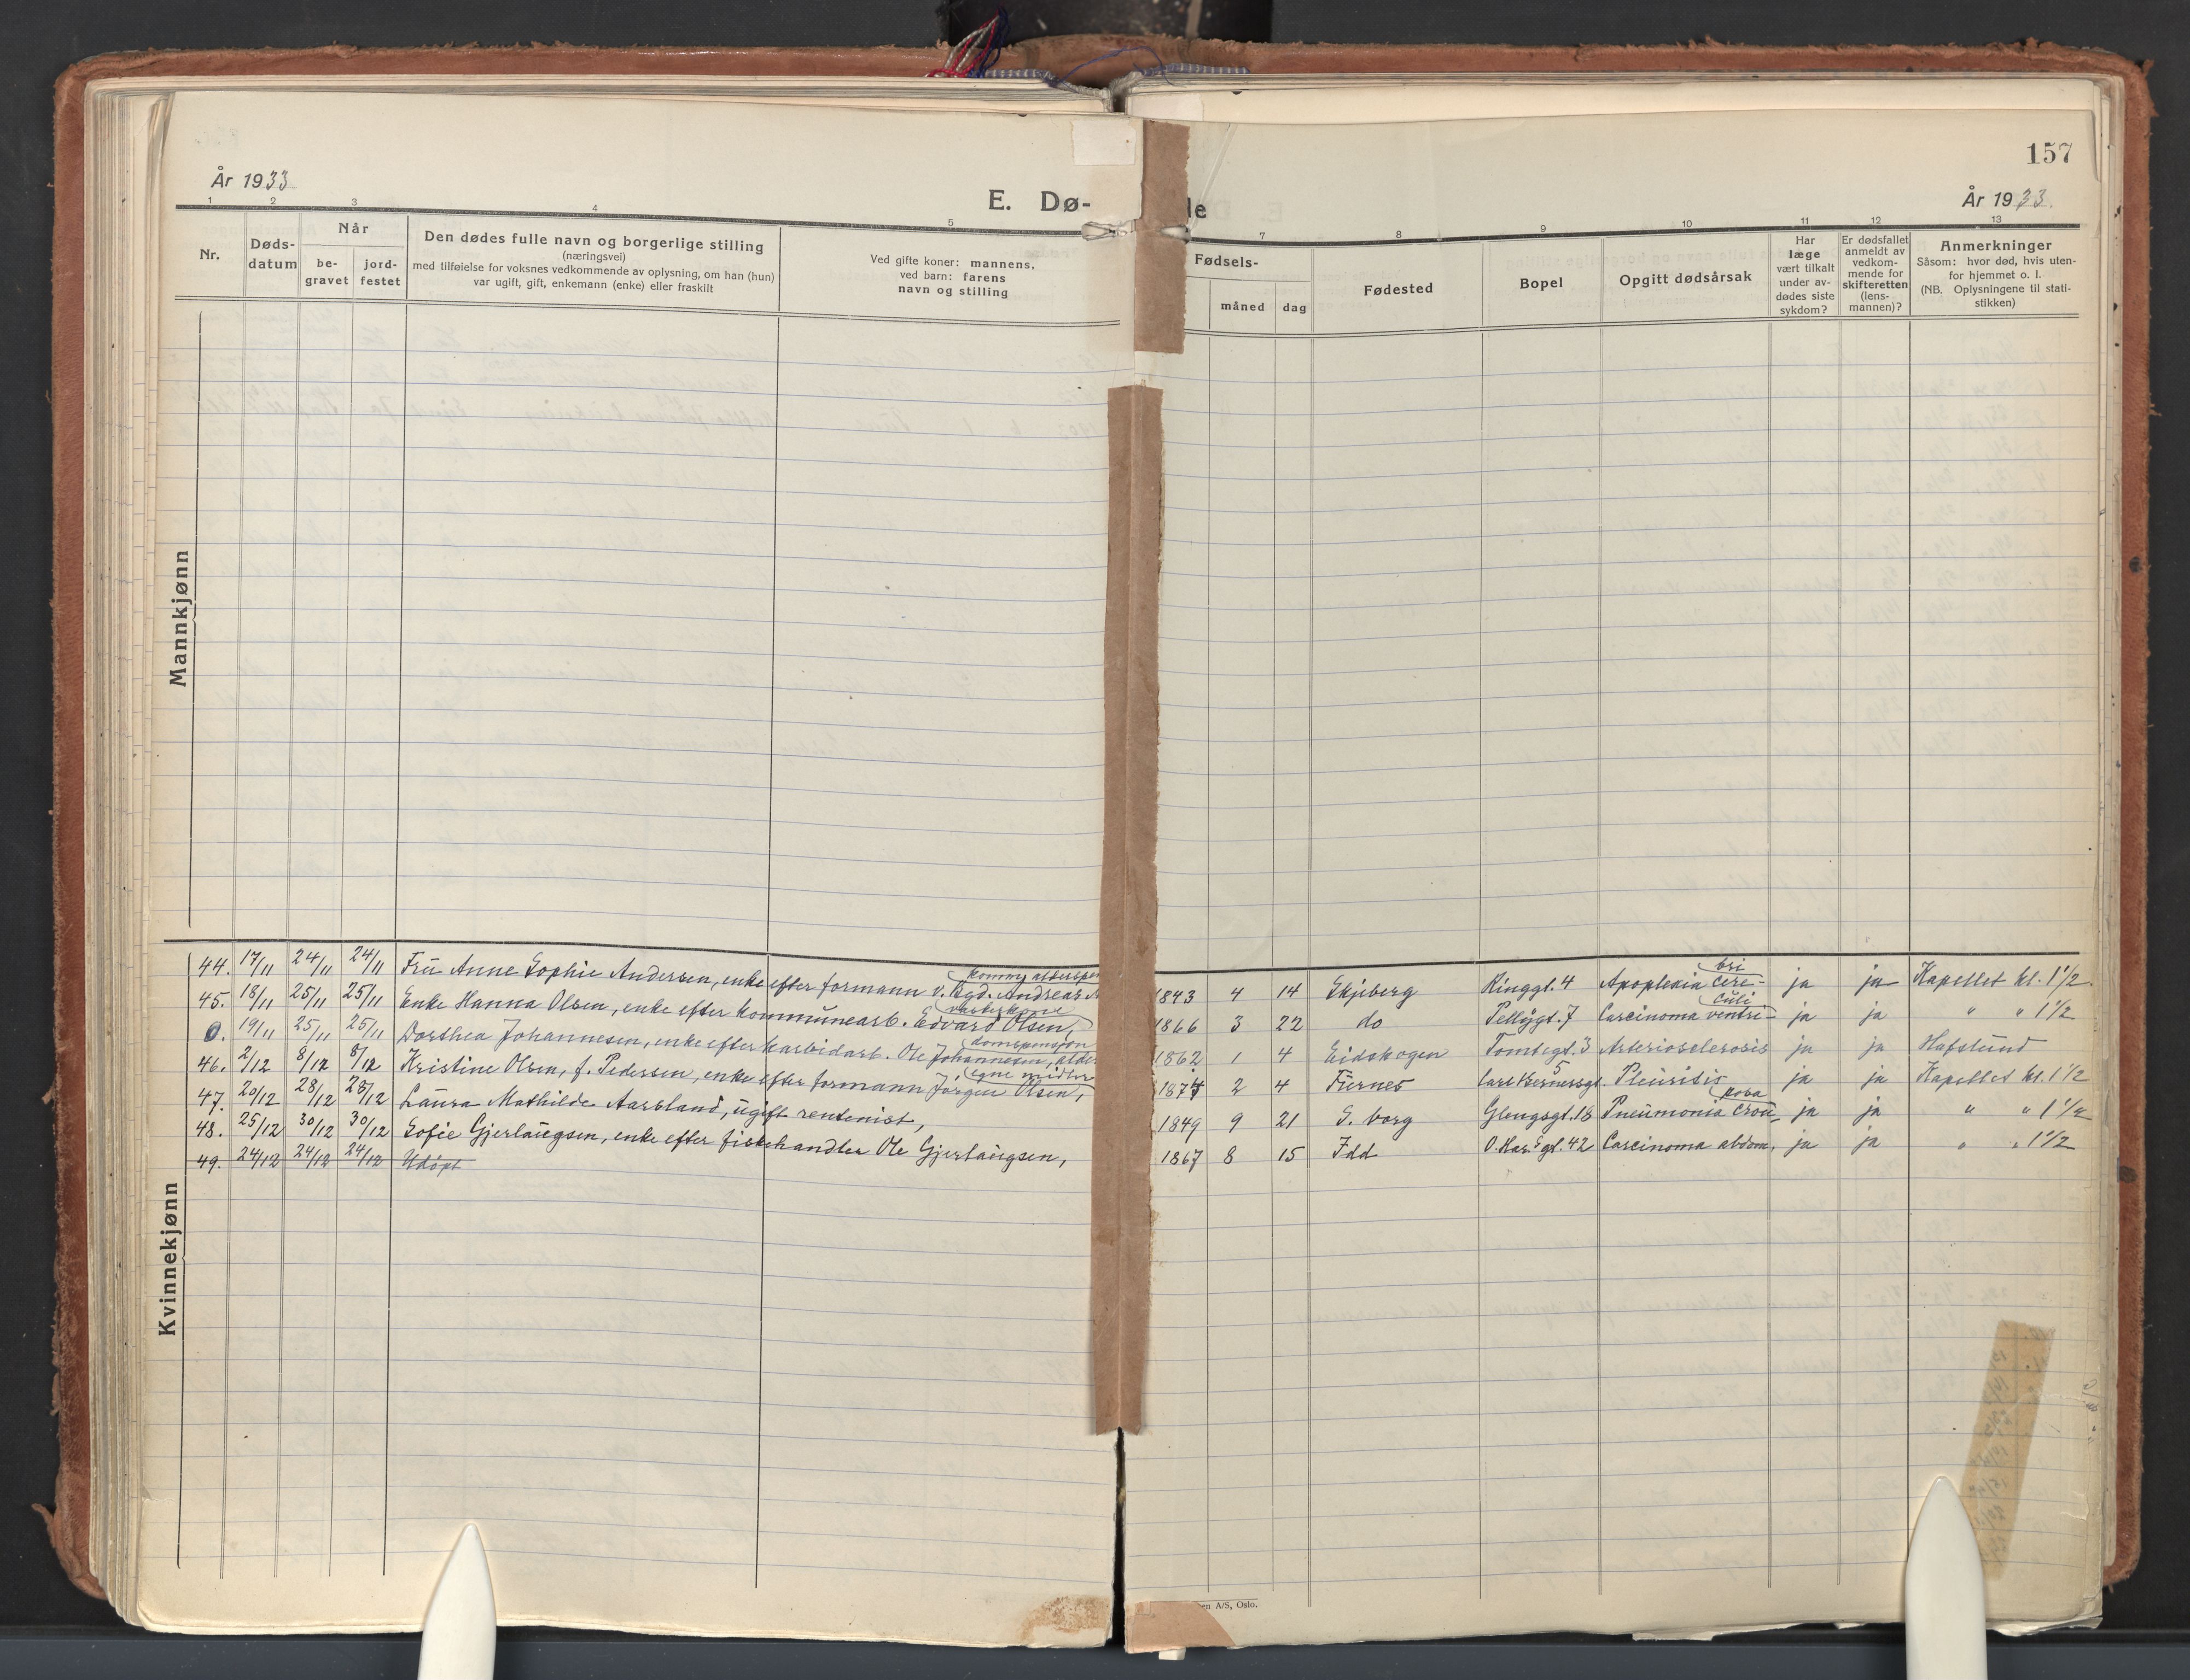 157
År 1933
År 1933.
E. Dø-
de
1 2 3 4 5 7 8 9 10 11 12 13
Nr.
Døds-
datum
Når
be-
gravet
jord-
festet
Den dødes fulle navn og borgerlige stilling
(næringsvei)
med tilføielse for voksnes vedkommende av oplysning, om han (hun)
var ugift, gift, enkemann (enke) eller fraskilt
Ved gifte koner: mannens,
ved barn: farens
navn og stilling
Fødsels-
måned
dag
Fødested
Bopel
Opgitt dødsårsak
Har
læge
vært tilkalt
under av-
dødes siste
sykdom?
Er dødsfallet
anmeldt av
vedkom-
mende for
skifteretten
(lens-
mannen)?
Anmerkninger
Såsom: hvor død, hvis uten-
for hjemmet o. l.
(NB. Oplysningene til stati-
stikken)
Mannkjønn
Kvinnekjønn
44. 17/11 24/11 24/11 Frü Anne Sophie Andersen, enke efter formann v. Andreas 1843 4 14 Skjeberg Ringgt. 4 Apoplexia cere-bri ja ja Kapellet kl. 1 1/2.
45. 18/11 25/11 25/11 Enke Hanna Olsen, enke efter kommünearb. Edvard Olsen, 1866 3 22 do Pellygt. 7 Carcinoma ventri-cüli ja ja " " 1 1/2
0. 19/11 25/11 25/11 Dorthea Johannesen, enke efter karbidarb. Ole Johannesen, alderdomspensjon 1862 1 4 Eidskogen Tomtegt. 3 Arteriosclerosis ja ja Hafslund
46. 2/12 8/12 8/12 Kristine Olsen, f. Pedersen, enke efter formann Jørgen Olsen, egne midler 1874 2 4 Fürnes Carl Bernersgt. 5 Pleüritis ja ja Kapellet kl. 1 1/2
47. 20/12 28/12 28/12 Laura Mathilde Aarsland, ügift rentenist, 1849 9 21 S. borg Glengsgt. 18 Pneümonia croü-posa ja ja " " 1 1/2
48. 25/12 30/12 30/12 Sofie Gjerlaügsen, enke efter fiskehandler Ole Gjerlaügsen, 1867 8 15 Idd O. Har. gt. 42 Carcinoma abdom. ja ja " " 1 1/2
49. 24/12 24/12 24/12 Udöpt
en A/S, Oslo.